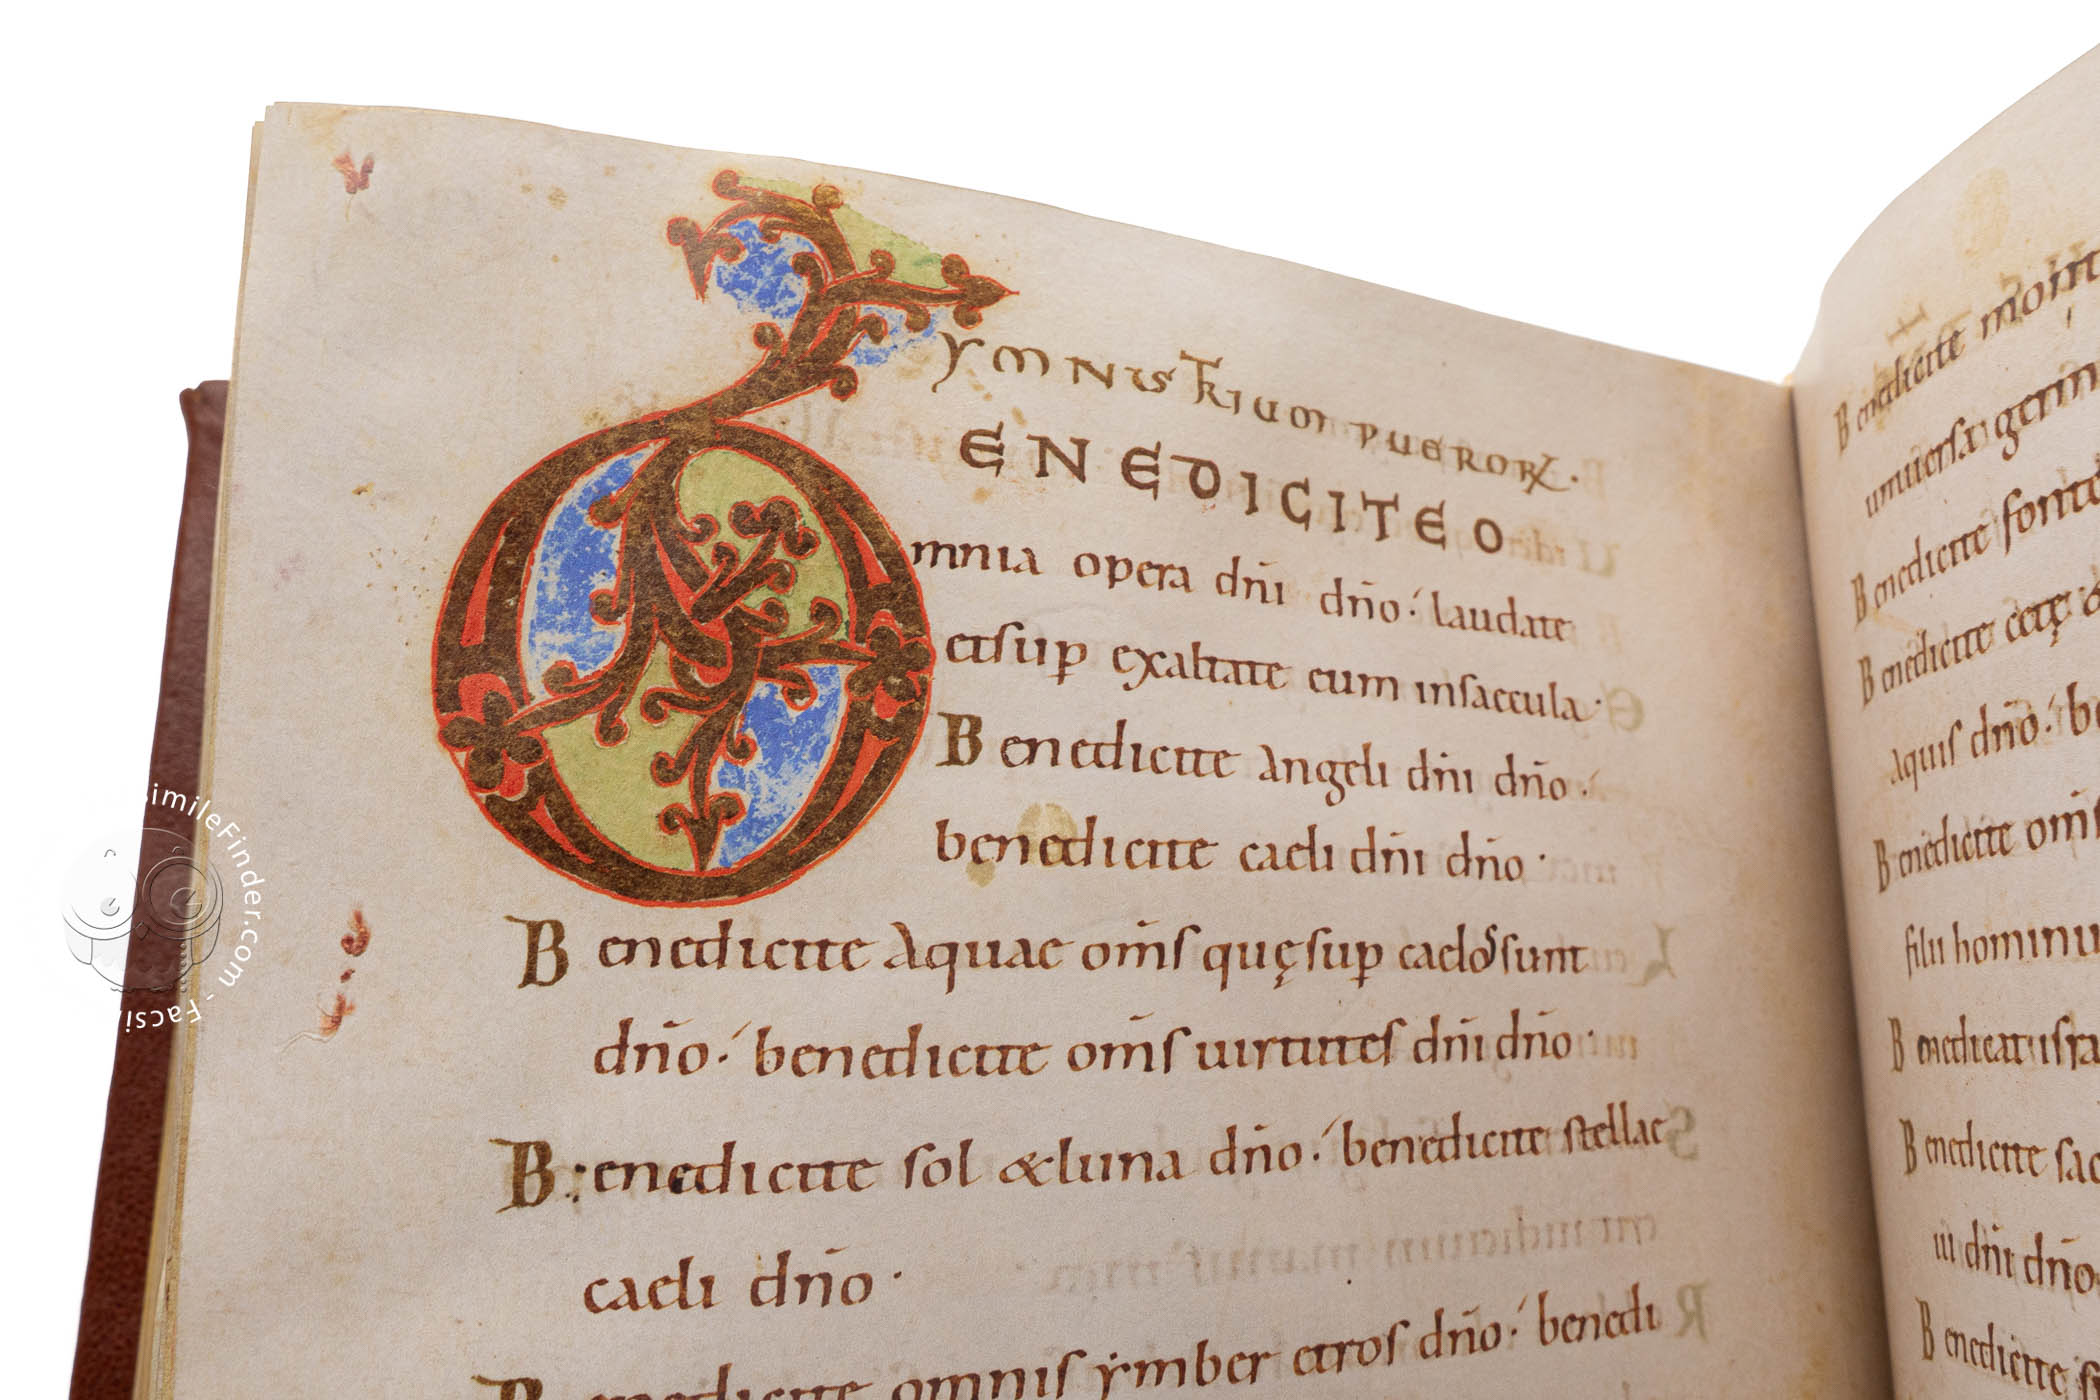 YMNUS TRIUM PUERORꝜ·
ENEDICITE O
mnia opera dñi dño· laudate
et sup̲ exaltate eum in saecula·
Benedicite angeli dñi dño·
benedicite caeli dñi dño·
Benedicite aquae om̄s quę sup̲ caelos sunt
dño· benedicite om̄s uirtutes dñi dño·
Benedicite sol & luna dño· benedicite stellae
caeli dño·
Benedicite omnis ymber et ros dño· benedi
Benedicite
uniuersa
Benedicite
Benedicite cetę
aquis dño· be
Benedicite om̄s
filii hominu
Benedicat isra
Benedicite sac
dñi dño
Benedicite
FacsimileFinder.com